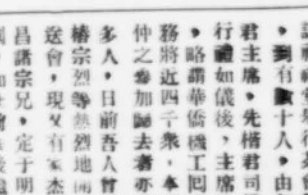 ，到有數十人，由
君主席，先楷君司
行禮如儀後，主席
，略謂華僑機工回
務將近四千衆，本
仲之參加歸去者亦
多人，日前吾人曾
椿宗烈等熱烈地開
送會，現又有家杰
昌諸宗兄，定于明